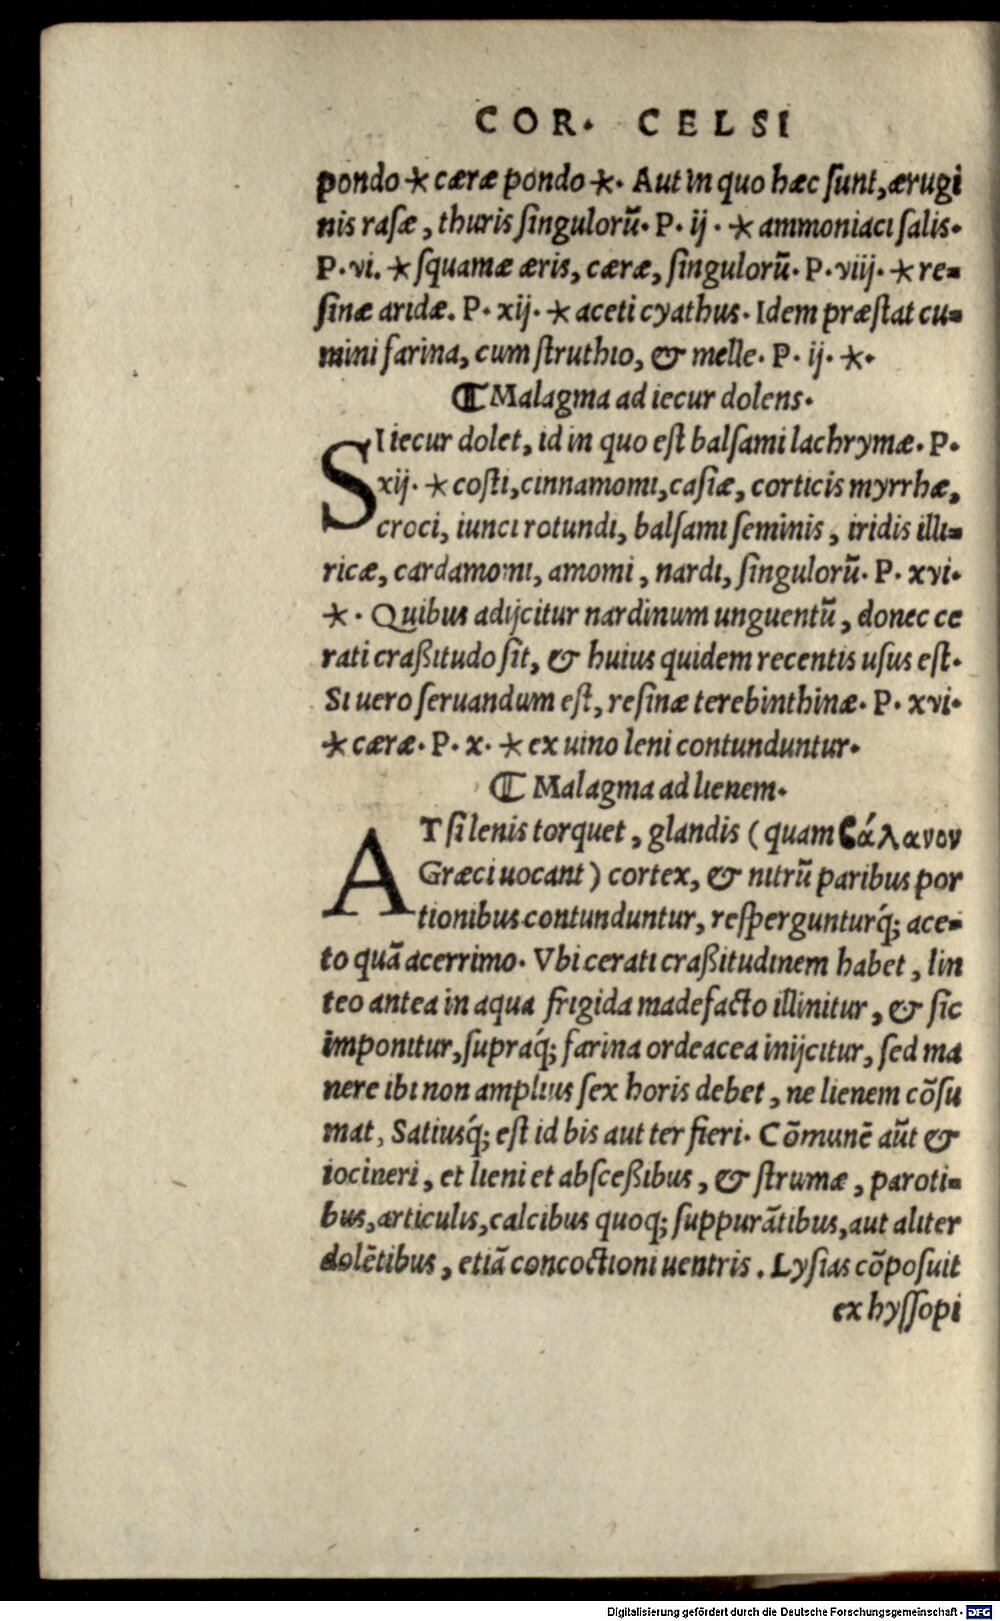 COR. CELSI
pondo * cæræ pondo *. Aut in quo hæc sunt, ærugi
nis rasæ, thuris singulorū. P. ij. * ammoniaci salis.
P. vi. * squamæ æris, cæræ, singulorū. P. viij. * re-
sinæ aridæ. P. xij. * aceti cyathus. Idem præstat cu-
mini farina, cum struthio, & melle. P. ij. *.
¶ Malagma ad iecur dolens.
SI iecur dolet, id in quo est balsami lachrymæ. P.
xij. * costi, cinnamomi, casiæ, corticis myrrhæ,
croci, iunci rotundi, balsami seminis, iridis illi-
ricæ, cardamomi, amomi, nardi, singulorū. P. xvi.
*. Quibus adijcitur nardinum unguentū, donec ce
rati craßitudo sit, & huius quidem recentis usus est.
Si uero seruandum est, resinæ terebinthinæ. P. xvi.
* cæræ. P. x. * ex uino leni contunduntur.
¶ Malagma ad lienem.
AT si lenis torquet, glandis (quam βάλανον
Græci uocant) cortex, & nitrū paribus por
tionibus contunduntur, respergunturq́; ace-
to quā acerrimo. Vbi cerati craßitudinem habet, lin
teo antea in aqua frigida madefacto illinitur, & sic
imponitur, supraq́; farina ordeacea inijcitur, sed ma
nere ibi non amplius sex horis debet, ne lienem cōsu
mat, Satiusq́; est id bis aut ter fieri. Cōmunē aūt &
iocineri, et lieni et absceßibus, & strumæ, paroti-
bus, articulis, calcibus quoq; suppurātibus, aut aliter
dolētibus, etiā concoctioni uentris. Lysias cōposuit
ex hyssopi
Digitalisierung gefördert durch die Deutsche Forschungsgemeinschaft - DFG